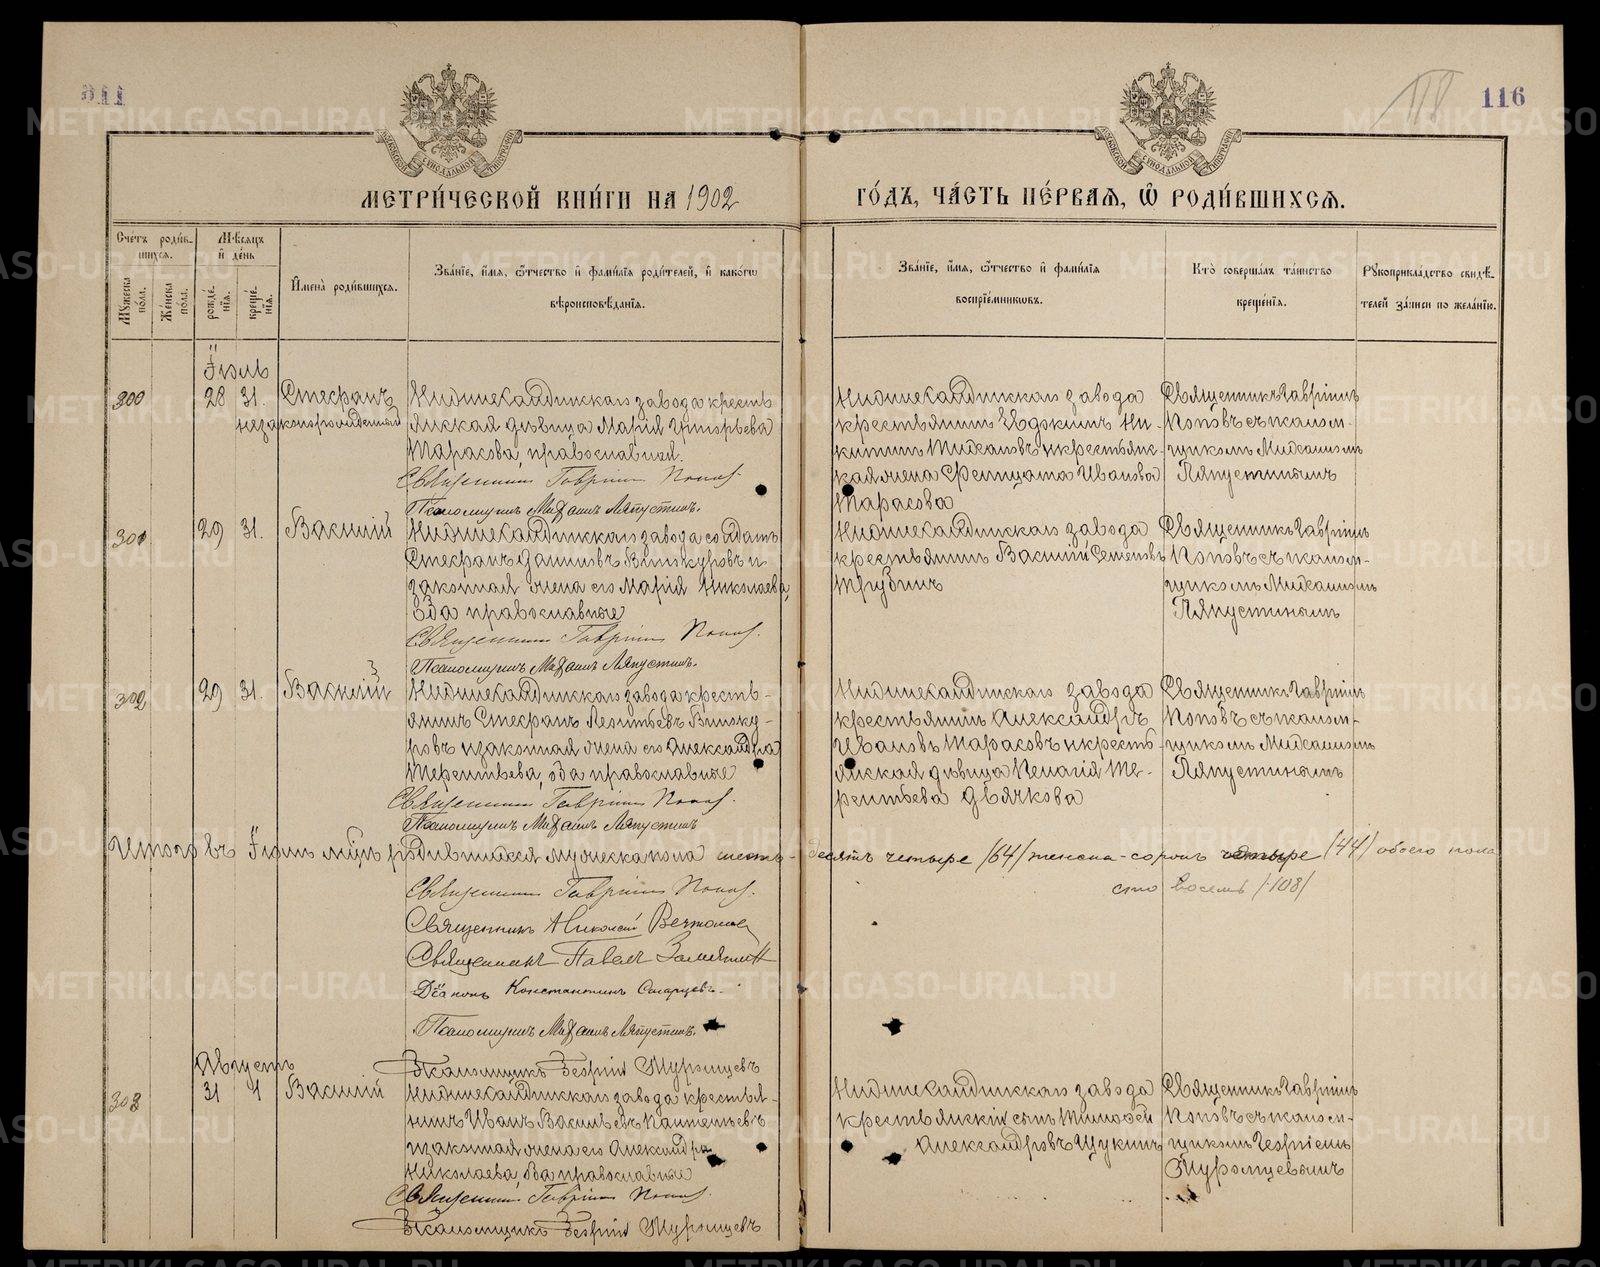 116
МЕТРИ́ЧЕСКОЙ КНИ́ГИ НА 1902
ГО́ДЪ, ЧА́СТЬ ПЕ́РВАЯ, Ѿ РОДИ́ВШИХСЯ.
Сче́тъ роди́в-
шихся.
Мѣ́сяцъ
и҆ де́нь
Мꙋжеска по́ла.
Же́нска по́ла.
рожде́-
нїя.
креще́-
нїя.
И҆мена̀ роди́вшихся.
Зва́нїе, и҆́мя, ѻ҆́тчество и҆ фами́лїя роди́телей, и҆ како́гѡ
вѣроисповѣ́данїя.
Зва́нїе, и҆́мя, ѻ҆́тчество и҆ фами́лїя
воспрїе́мниковъ.
Кто̀ соверша́лъ та́инство
креще́нїя.
Рꙋкоприкла́дство свидѣ́-
телей за́писи по жела́нїю.
Іюль
300
28 31.
Стефанъ
незаконорожденный
Нижнесалдинскаго завода кресть
янская дѣвица Марія Григорьева
Тарасова, православная.
Священникъ Гавріилъ Поповъ.
Псаломщикъ Михаилъ Ляпустинъ.
Нижнесалдинскаго завода
крестьянинъ Евдокимъ Ни-
китинъ и крестьянс-
кая жена Иванова
Тарасова
Священникъ Гавріилъ
Поповъ съ псалом-
щикомъ Михаиломъ
Ляпустинымъ
301
29 31.
Василій
Нижнесалдинскаго завода солдатъ
Стефанъ Даниловъ Винокуровъ и
законная жена его Марія Николаева,
оба православные
Священникъ Гавріилъ Поповъ.
Псаломщикъ Михаилъ Ляпустинъ.
Нижнесалдинскаго завода
крестьянинъ Василій Семеновъ
Трубинъ
Священникъ Гавріилъ
Поповъ съ псалом-
щикомъ Михаиломъ
Ляпустинымъ
302
29 31.
Василій
3
Нижнесалдинскаго завода кресть-
янинъ Стефанъ Леонтьевъ Виноку-
ровъ и законная жена его Александра
Терентьева, оба православные
Священникъ Гавріилъ Поповъ.
Псаломщикъ Михаилъ Ляпустинъ
Нижнесалдинскаго завода
крестьянинъ Александръ
Ивановъ Тарасовъ и кресть-
янская дѣвица Пелагія Те-
рентьева Дьячкова
Священникъ Гавріилъ
Поповъ съ псалом-
щикомъ Михаиломъ
Ляпустинымъ
Итого въ Іюлѣ мѣцѣ родившихся мужеска пола шесть-десятъ четыре /64/ женска - сорокъ четыре /44/ обоего пола
сто восемь /108/
Священникъ Гавріилъ Поповъ.
Священникъ Николай
Священникъ Павелъ Замятинъ
Діаконъ Константинъ Старцевъ.
Псаломщикъ Михаилъ Ляпустинъ.
Псаломщикъ Георгій Муромцевъ
Августъ
303
31 4
Василій
Нижнесалдинскаго завода крестья-
нинъ Иванъ Васильевъ Пантелеевъ
и законная жена его Александра
Николаева, оба православные
Священникъ Гавріилъ Поповъ.
Псаломщикъ Георгій Муромцевъ
Нижнесалдинскаго завода
крестьянскій сынъ Тимофей
Александровъ Щукинъ
Священникъ Гавріилъ
Поповъ съ псалом-
щикомъ Георгіемъ
Муромцевымъ
METRIKI.GASO-URAL.RU